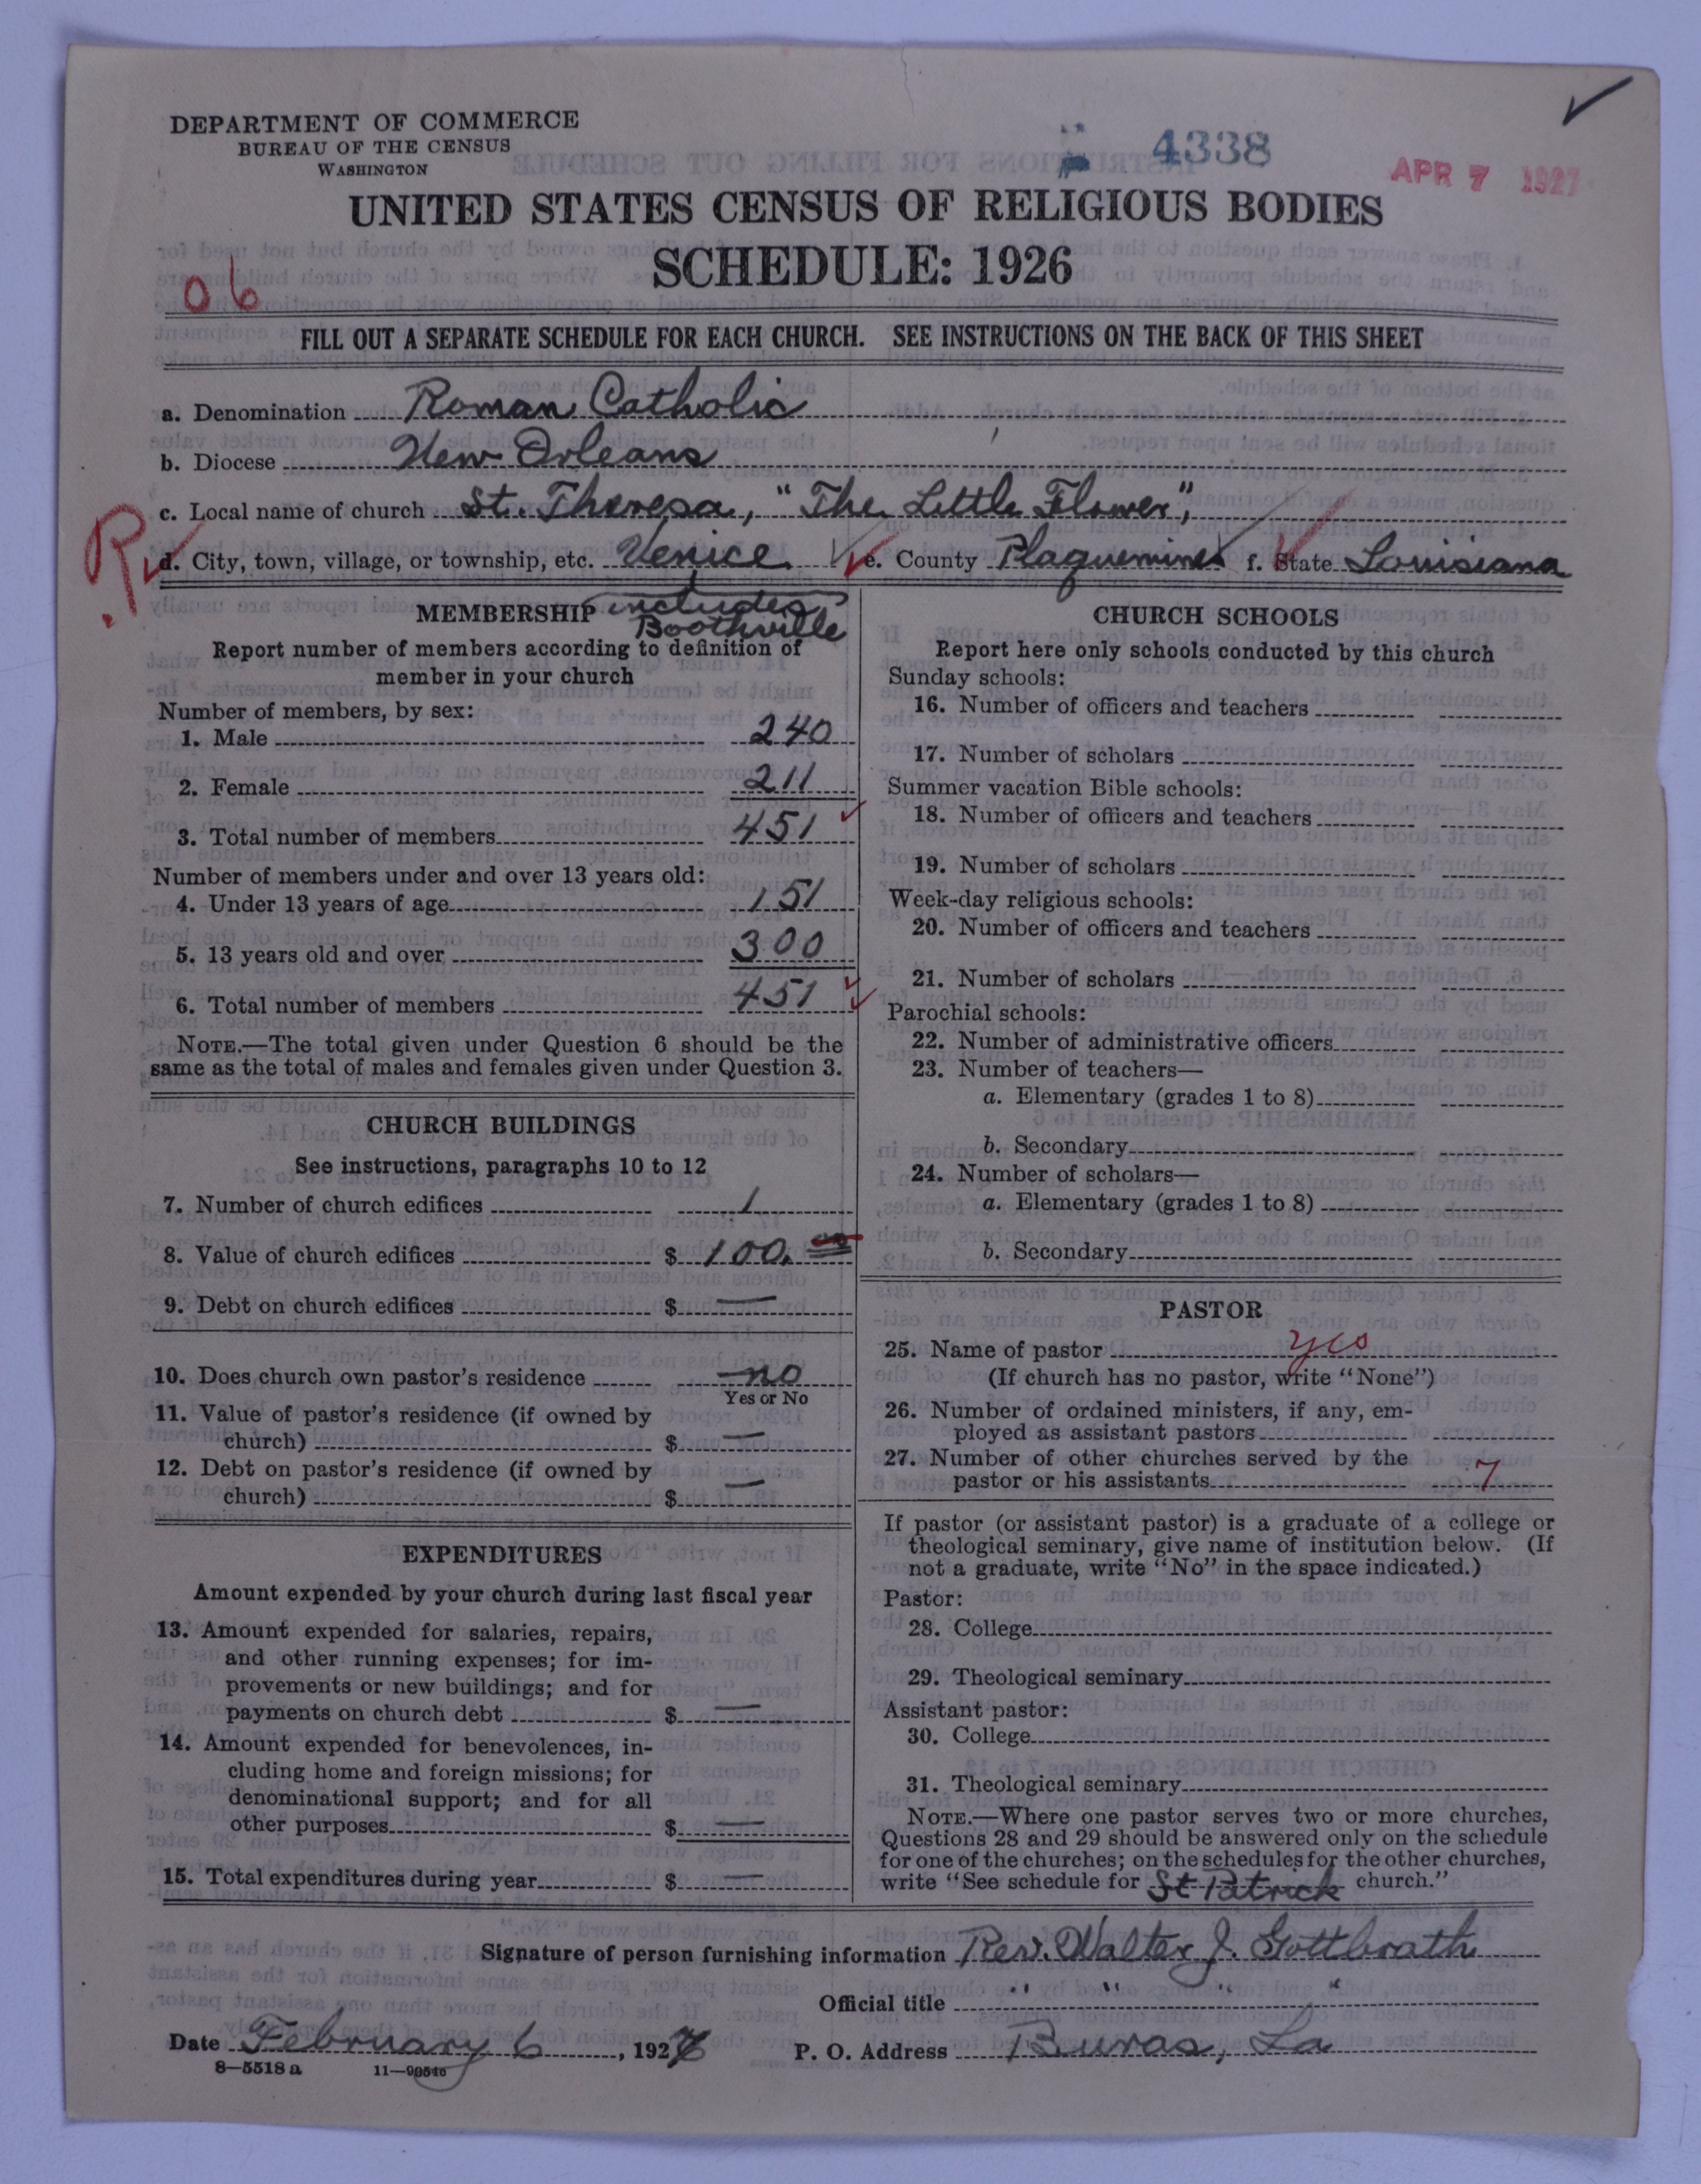 DEPARTMENT OF COMMERCE
BUREAU OF THE CENSUS
WASHINGTON
4338
APR 7 1927
UNITED STATES CENSUS OF RELIGIOUS BODIES
SCHEDULE: 1926
06
FILL OUT A SEPARATE SCHEDULE FOR EACH CHURCH. SEE INSTRUCTIONS ON THE BACK OF THIS SHEET
a. Denomination Roman Catholic
b. Diocese New Orleans
c. Local name of church St. Theresa, "The Little Flower",
R
d. City, town, village, or township, etc. Venice e. County Plaquemines f. State Louisiana
MEMBERSHIP includes
Boothville
Report number of members according to definition of
member in your church
Number of members, by sex:
1. Male 240
2. Female 211
3. Total number of members 451
Number of members under and over 13 years old:
4. Under 13 years of age 151
5. 13 years old and over 300
6. Total number of members 451
NOTE.—The total given under Question 6 should be the
same as the total of males and females given under Question 3.
CHURCH BUILDINGS
See instructions, paragraphs 10 to 12
7. Number of church edifices 1
8. Value of church edifices $ 100.00
9. Debt on church edifices $ —
10. Does church own pastor's residence no
Yes or No
11. Value of pastor's residence (if owned by
church) $ —
12. Debt on pastor's residence (if owned by
church) $ —
EXPENDITURES
Amount expended by your church during last fiscal year
13. Amount expended for salaries, repairs,
and other running expenses; for im-
provements or new buildings; and for
payments on church debt $ —
14. Amount expended for benevolences, in-
cluding home and foreign missions; for
denominational support; and for all
other purposes $ —
15. Total expenditures during year $ —
CHURCH SCHOOLS
Report here only schools conducted by this church
Sunday schools:
16. Number of officers and teachers
17. Number of scholars
Summer vacation Bible schools:
18. Number of officers and teachers
19. Number of scholars
Week-day religious schools:
20. Number of officers and teachers
21. Number of scholars
Parochial schools:
22. Number of administrative officers
23. Number of teachers—
a. Elementary (grades 1 to 8)
b. Secondary
24. Number of scholars—
a. Elementary (grades 1 to 8)
b. Secondary
PASTOR
25. Name of pastor yes
(If church has no pastor, write "None")
26. Number of ordained ministers, if any, em-
ployed as assistant pastors
27. Number of other churches served by the
pastor or his assistants 7
If pastor (or assistant pastor) is a graduate of a college or
theological seminary, give name of institution below. (If
not a graduate, write "No" in the space indicated.)
Pastor:
28. College
29. Theological seminary
Assistant pastor:
30. College
31. Theological seminary
NOTE.—Where one pastor serves two or more churches,
Questions 28 and 29 should be answered only on the schedule
for one of the churches; on the schedules for the other churches,
write "See schedule for St Patrick church."
Signature of person furnishing information Rev. Walter J. Gottbrath
Official title " " " "
Date February 6, 1927
P. O. Address Buras, La
8—5518 a 11—99546